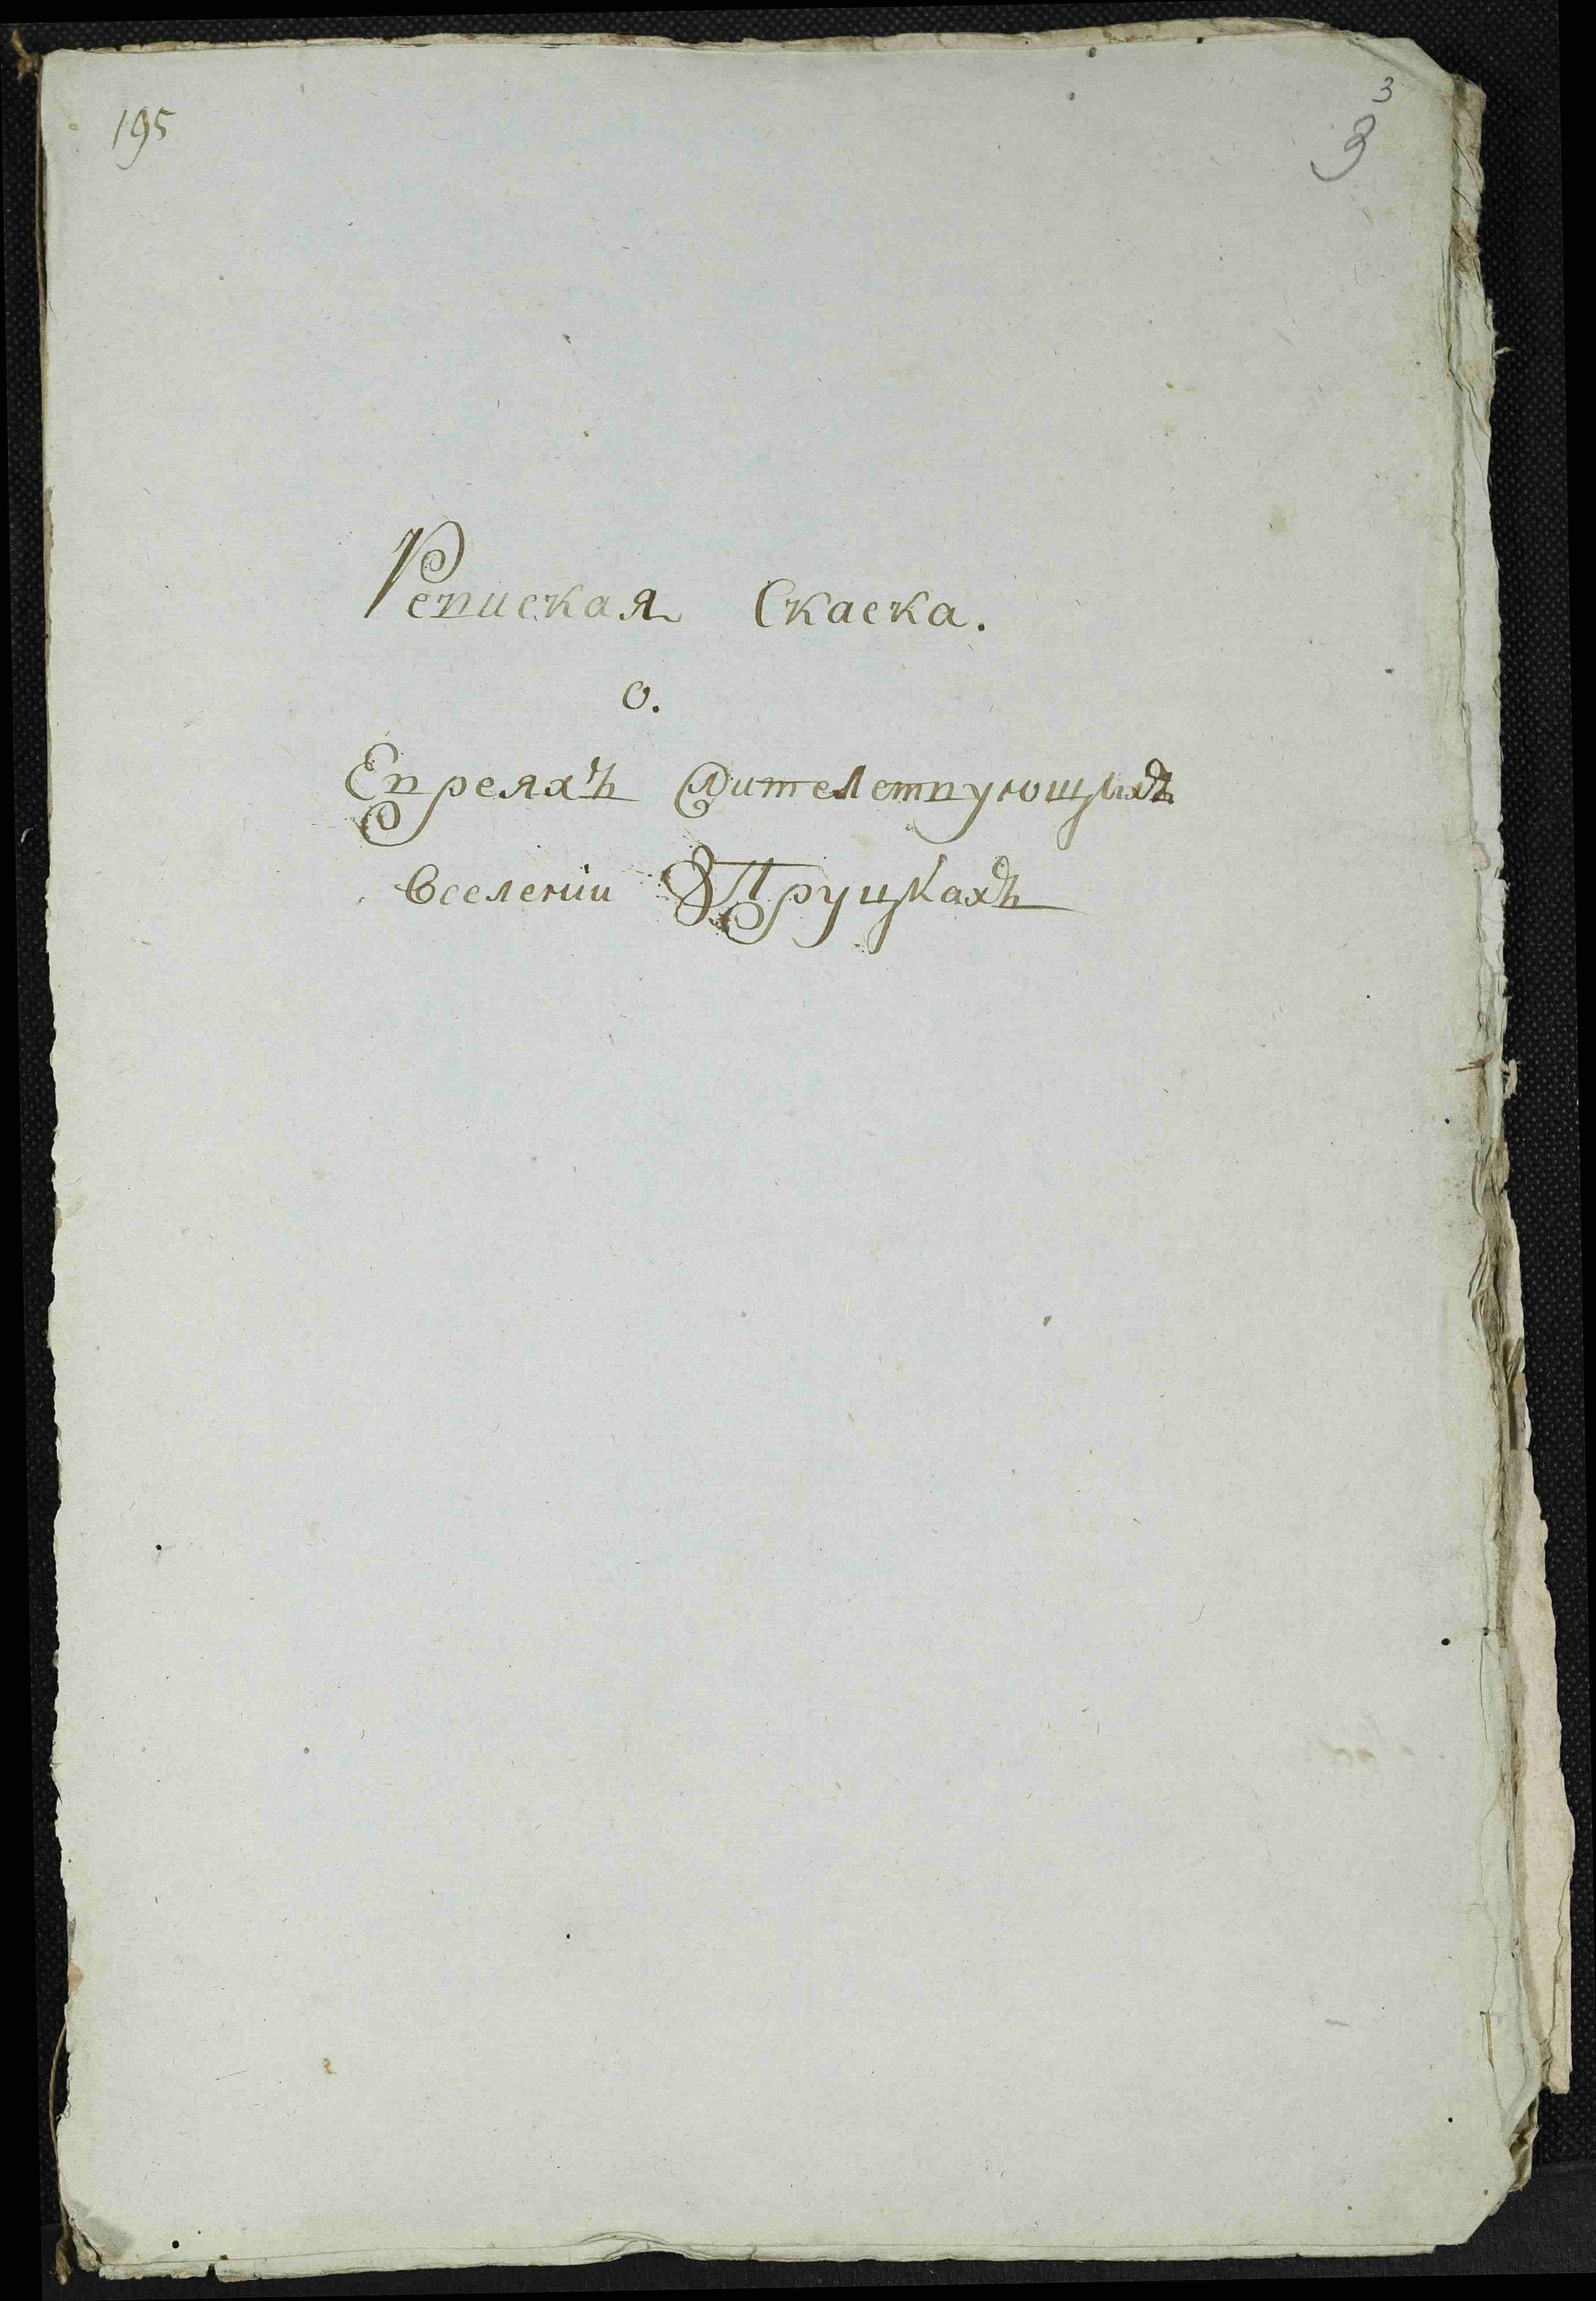 195
3
3
Ревиская Скаска.
о.
Евреяхъ Жителствующихъ
вселении Троуцкахъ